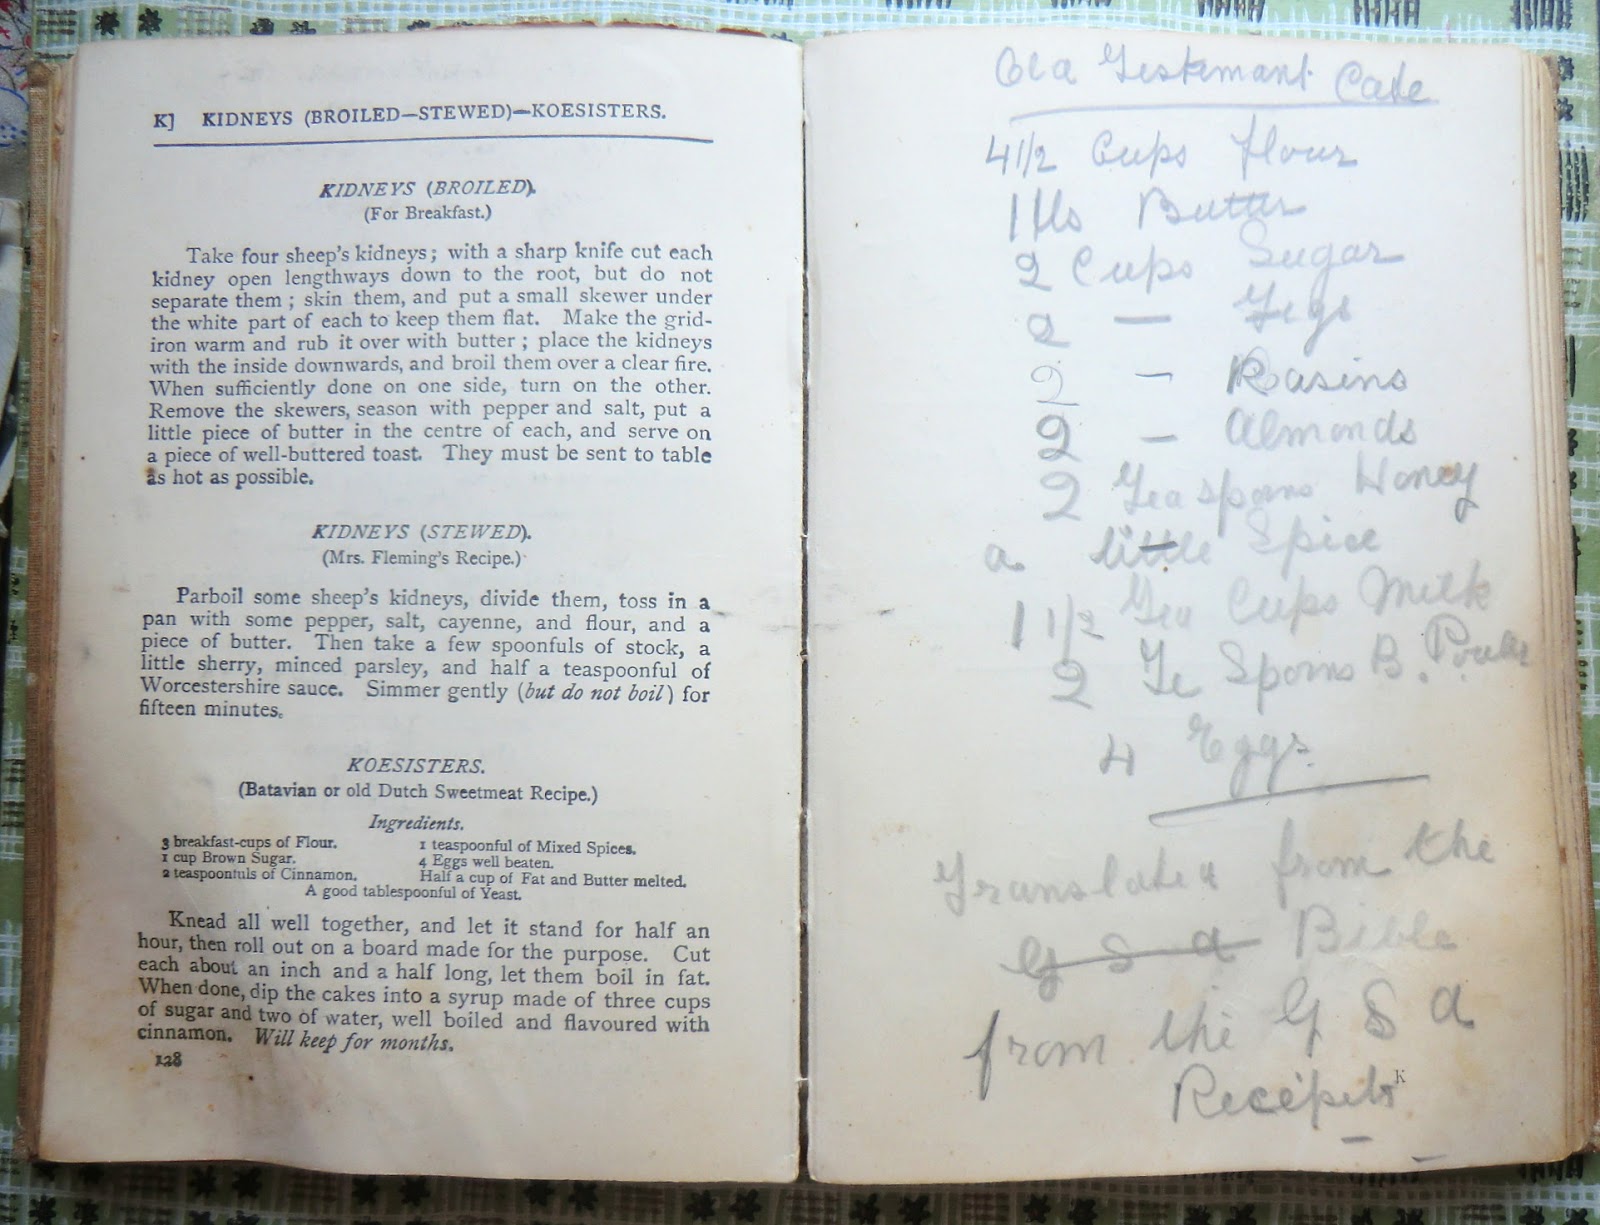 K] KIDNEYS (BROILED—STEWED)—KOESISTERS.
KIDNEYS (BROILED).
(For Breakfast.)
Take four sheep's kidneys; with a sharp knife cut each
kidney open lengthways down to the root, but do not
separate them; skin them, and put a small skewer under
the white part of each to keep them flat. Make the grid-
iron warm and rub it over with butter; place the kidneys
with the inside downwards, and broil them over a clear fire.
When sufficiently done on one side, turn on the other.
Remove the skewers, season with pepper and salt, put a
little piece of butter in the centre of each, and serve on
a piece of well-buttered toast. They must be sent to table
as hot as possible.
KIDNEYS (STEWED).
(Mrs. Fleming's Recipe.)
Parboil some sheep's kidneys, divide them, toss in a
pan with some pepper, salt, cayenne, and flour, and a
piece of butter. Then take a few spoonfuls of stock, a
little sherry, minced parsley, and half a teaspoonful of
Worcestershire sauce. Simmer gently (but do not boil) for
fifteen minutes.
KOESISTERS.
(Batavian or old Dutch Sweetmeat Recipe.)
Ingredients.
3 breakfast-cups of Flour.
1 cup Brown Sugar.
2 teaspoonfuls of Cinnamon.
1 teaspoonful of Mixed Spices.
4 Eggs well beaten.
Half a cup of Fat and Butter melted.
A good tablespoonful of Yeast.
Knead all well together, and let it stand for half an
hour, then roll out on a board made for the purpose. Cut
each about an inch and a half long, let them boil in fat.
When done, dip the cakes into a syrup made of three cups
of sugar and two of water, well boiled and flavoured with
cinnamon. Will keep for months.
128
Old Testemant Cake
4 1/2 Cups flour
1 lbs Butter
2 Cups Sugar
2 — Figs
2 — Rasins
2 — Almonds
2 Teaspoons Honey
a little Spice
1 1/2 Tea Cups Milk
2 Te Spoons B.
4 Eggs
Translated from the
G S A Bible
from the G S A
Recipets
K